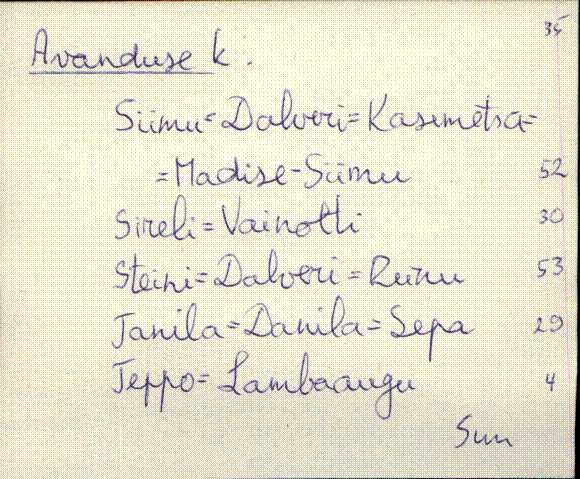 35
Avanduse k.
Siimu=Dalveri=Kasemetsa=
=Madise-Siimu 52
Sireli=Vainotti 30
Steini=Dalveri=Runu 53
Tanila=Danila=Sepa 29
Teppo=Lambaaugu 4